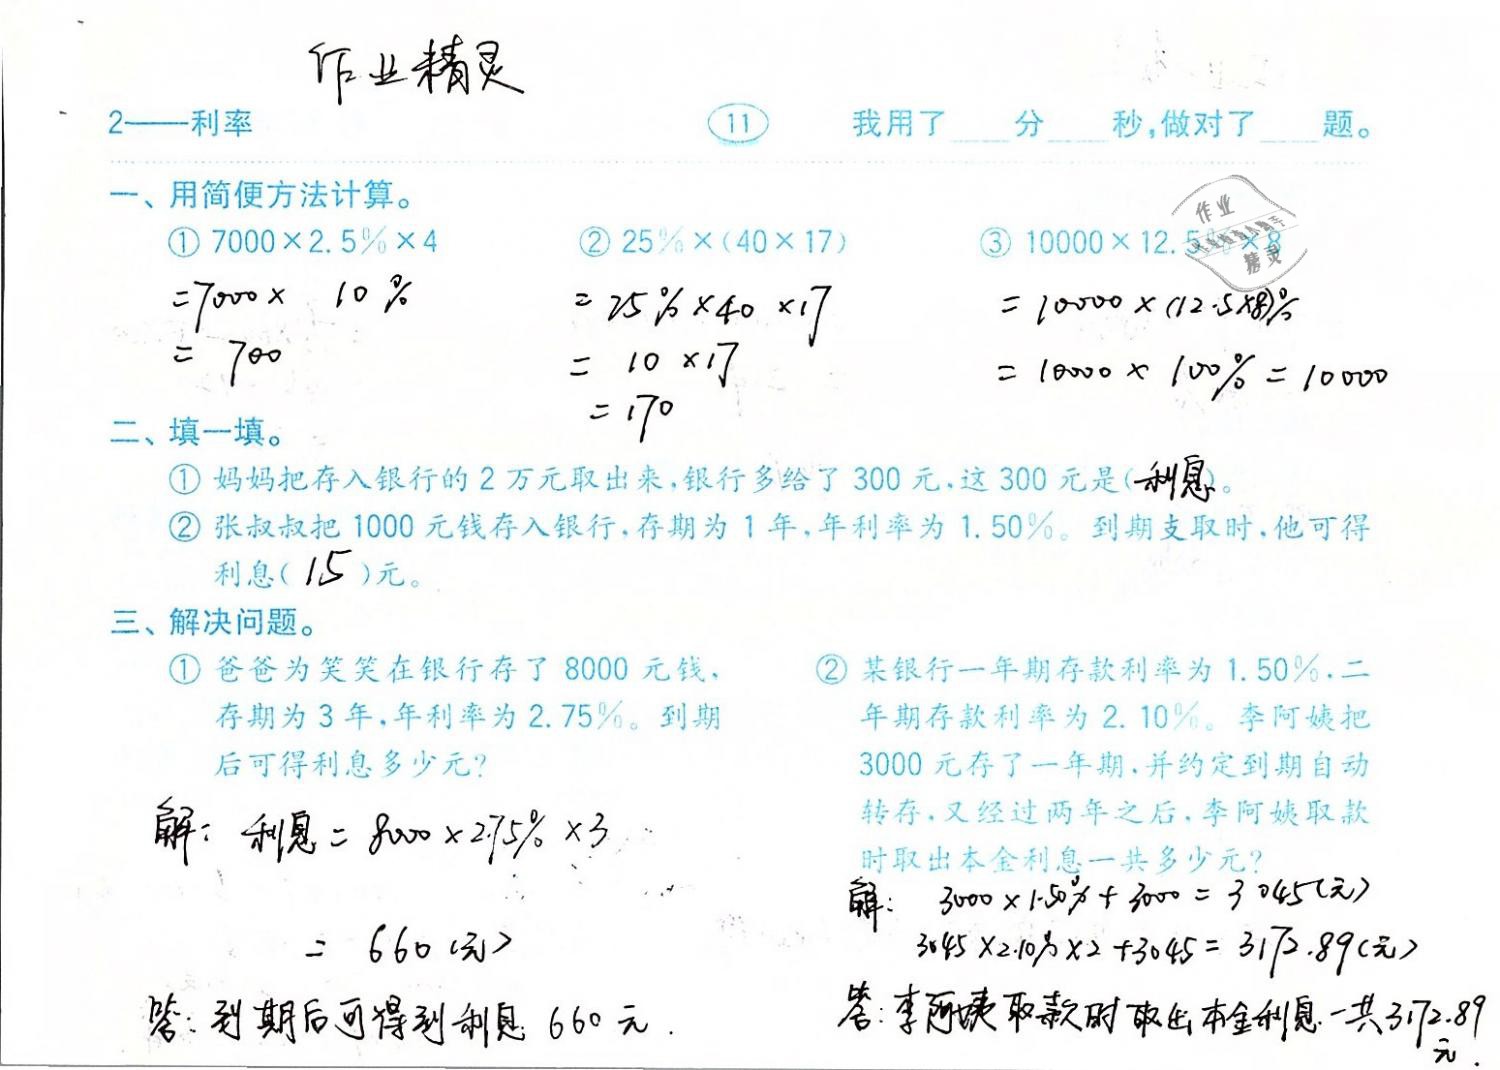 作业精灵
2——利率 11 我用了____分____秒,做对了____题。
一、用简便方法计算。
① 7000×2.5%×4 ② 25%×(40×17) ③ 10000×12.5%×8
作业
精灵
=7000× 10% =25%×40×17 =10000×(12.5×8)%
= 700 = 10×17 =10000×100%=10000
=170
二、填一填。
① 妈妈把存入银行的2万元取出来,银行多给了300元,这300元是(利息)。
② 张叔叔把1000元钱存入银行,存期为1年,年利率为1.50%。到期支取时,他可得
利息(15)元。
三、解决问题。
① 爸爸为笑笑在银行存了8000元钱,
存期为3年,年利率为2.75%。到期
后可得利息多少元?
解:利息=8000×2.75%×3
=660(元)
答:到期后可得到利息660元.
② 某银行一年期存款利率为1.50%,二
年期存款利率为2.10%。李阿姨把
3000元存了一年期,并约定到期自动
转存,又经过两年之后,李阿姨取款
时取出本金利息一共多少元?
解: 3000×1.50%+3000=3045(元)
3045×2.10%×2+3045=3172.89(元)
答:李阿姨取款时取出本金利息一共3172.89
元.